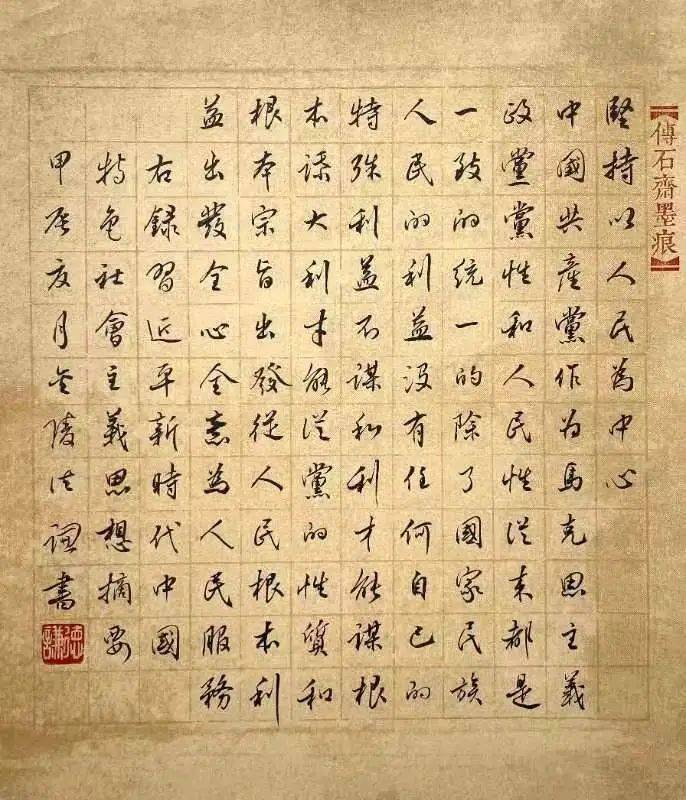 【傳石齋墨痕】
堅持以人民為中心
中國共產黨作为馬克思主義
政黨黨性和人民性從来都是
一致的統一的除了國家民族
人民的利益没有任何自己的
特殊利益不謀私利才能謀根
本謀大利才能從黨的性質和
根本宗旨出發從人民根本利
益出發全心全意為人民服務
右録習近平新時代中國
特色社會主義思想摘要
甲辰夏月金陵書